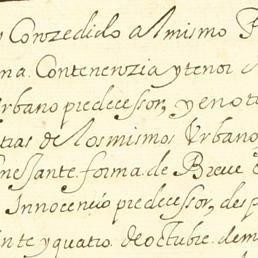 y Conzedido al mismo
na. Contenenzia y tenor
Urbano predecessor, y en o t
tias de los mismos Urbano
nessante forma de Breve
Innocencio predecessor, des p
inte y quatro de octubre de m